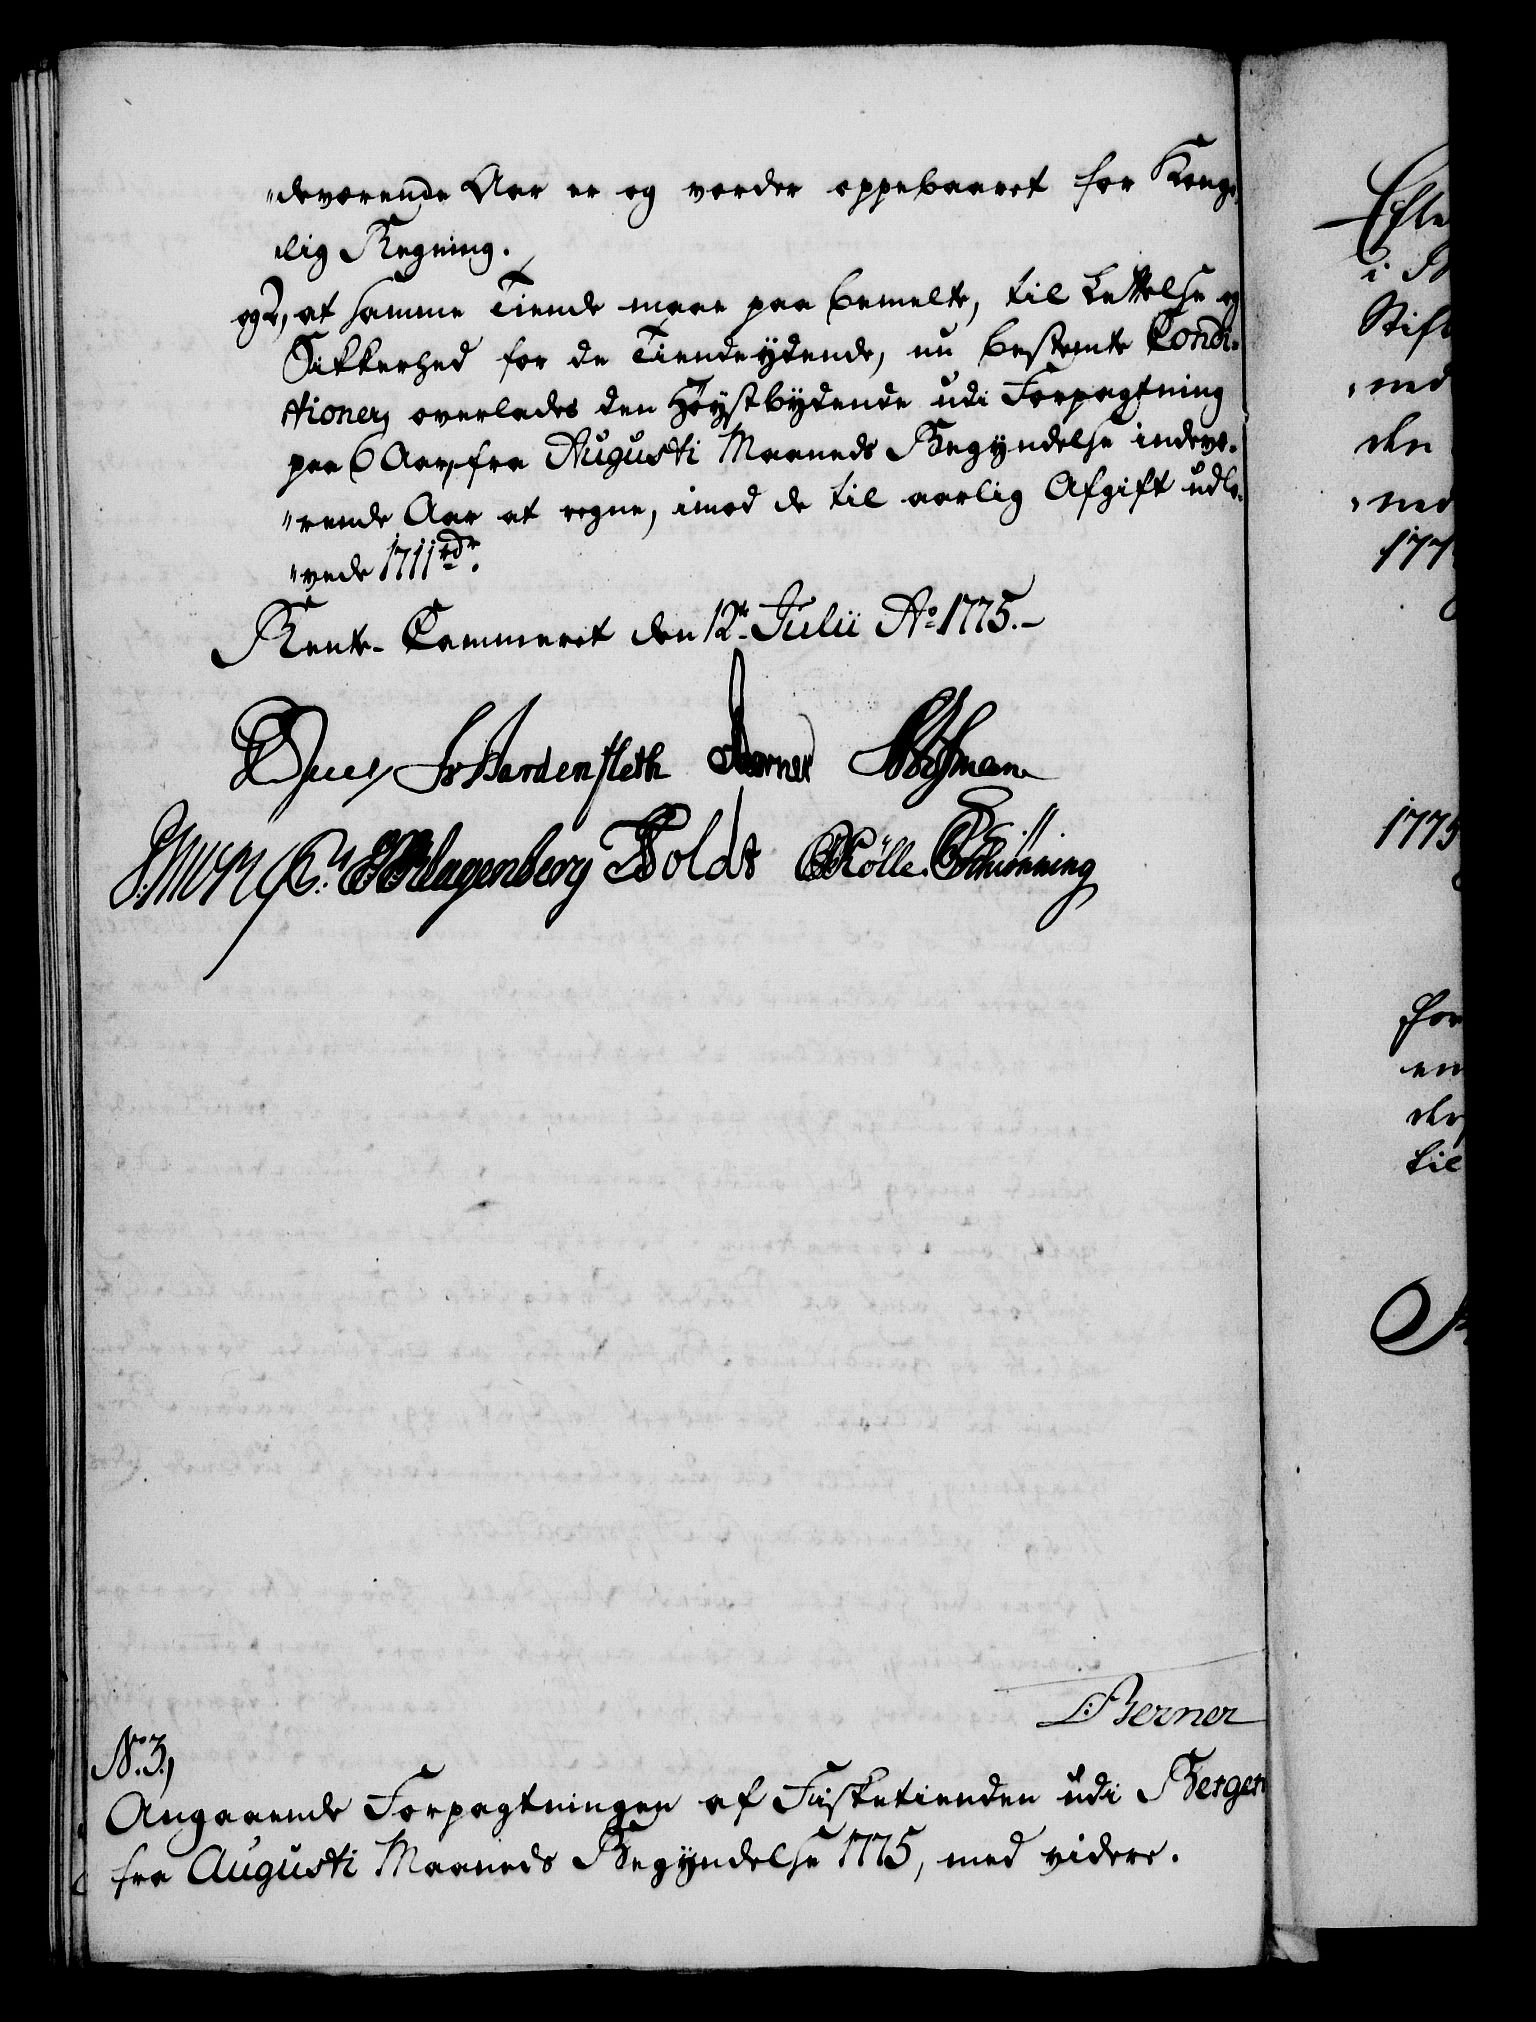 "deværende Aar er og vorder oppebaaret for Konge-
"lig Regning.
og 2, at samme Tiende maae paa bemelte, til Lettelse og
Sikkerhed for de Tiendeydende, nu bestemte Condi-
"tioner, overlades den Høystbydende udi Forpagtning
paa 6 Aar, fra Augusti Maaneds Begyndelse indevæ-
"rende Aar at regne, imod de til aarlig Afgift udlo-
"vede 1711 rdr.
Rente-Cammeret den 12te Julii Ao 1775.
Hardenfleth Berner
Klagenberg Holdt Rølle. Schiønning
/: Berner
No. 3,
Angaaende Forpagtningen af Fisketienden udi Bergen
fra Augusti Maaneds Begyndelse 1775, med videre.
Efte
Stift
den
177
1775
for
en
til